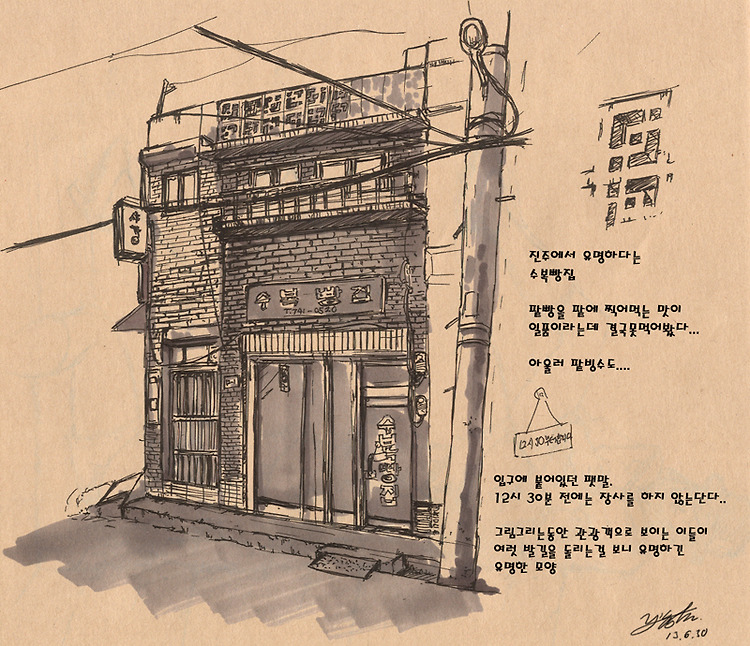 수복빵집
T.741-0520
수복빵집
진주
진주에서 유명하다는
수복빵집
팥빵을 팥에 찍어먹는 맛이
일품이라는데 결국못먹어봤다...
아울러 팥빙수도....
12시 30부터합니다
입구에 붙어있던 팻말.
12시 30분 전에는 장사를 하지 않는단다..
그림그리는동안 관광객으로 보이는 이들이
여럿 발길을 돌리는걸 보니 유명하긴
유명한 모양
13.6.30